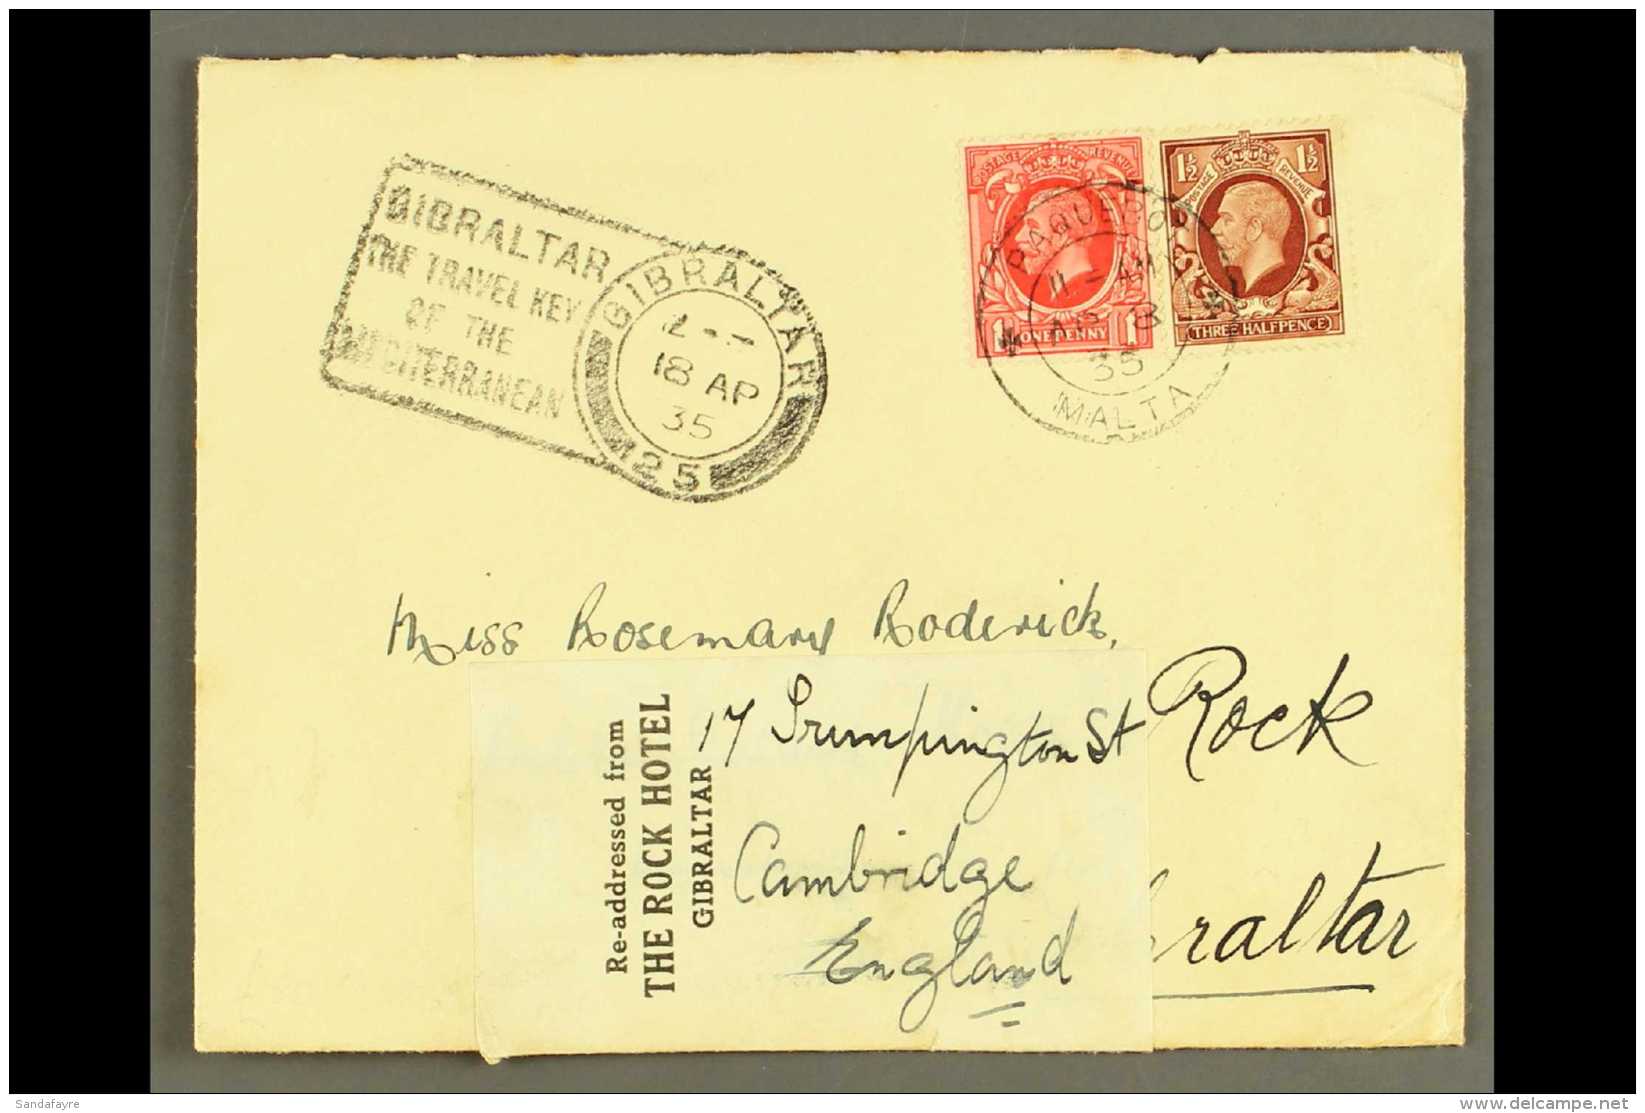 GIBRALTAR
THE TRAVEL KEY
OF THE
MEDITERRANEAN
GIBRALTAR
18 AP
35
125
POSTAGE REVENUE
1 ONE PENNY 1
1½ 1½
POSTAGE REVENUE
THREE HALFPENCE
PAQUEBOT
AP 8
35
MALTA
Miss Rosemary Roderick,
Rock
raltar
Re-addressed from
THE ROCK HOTEL
GIBRALTAR
17 Trumpington St
Cambridge
England
Sandafayre
delcampe.net